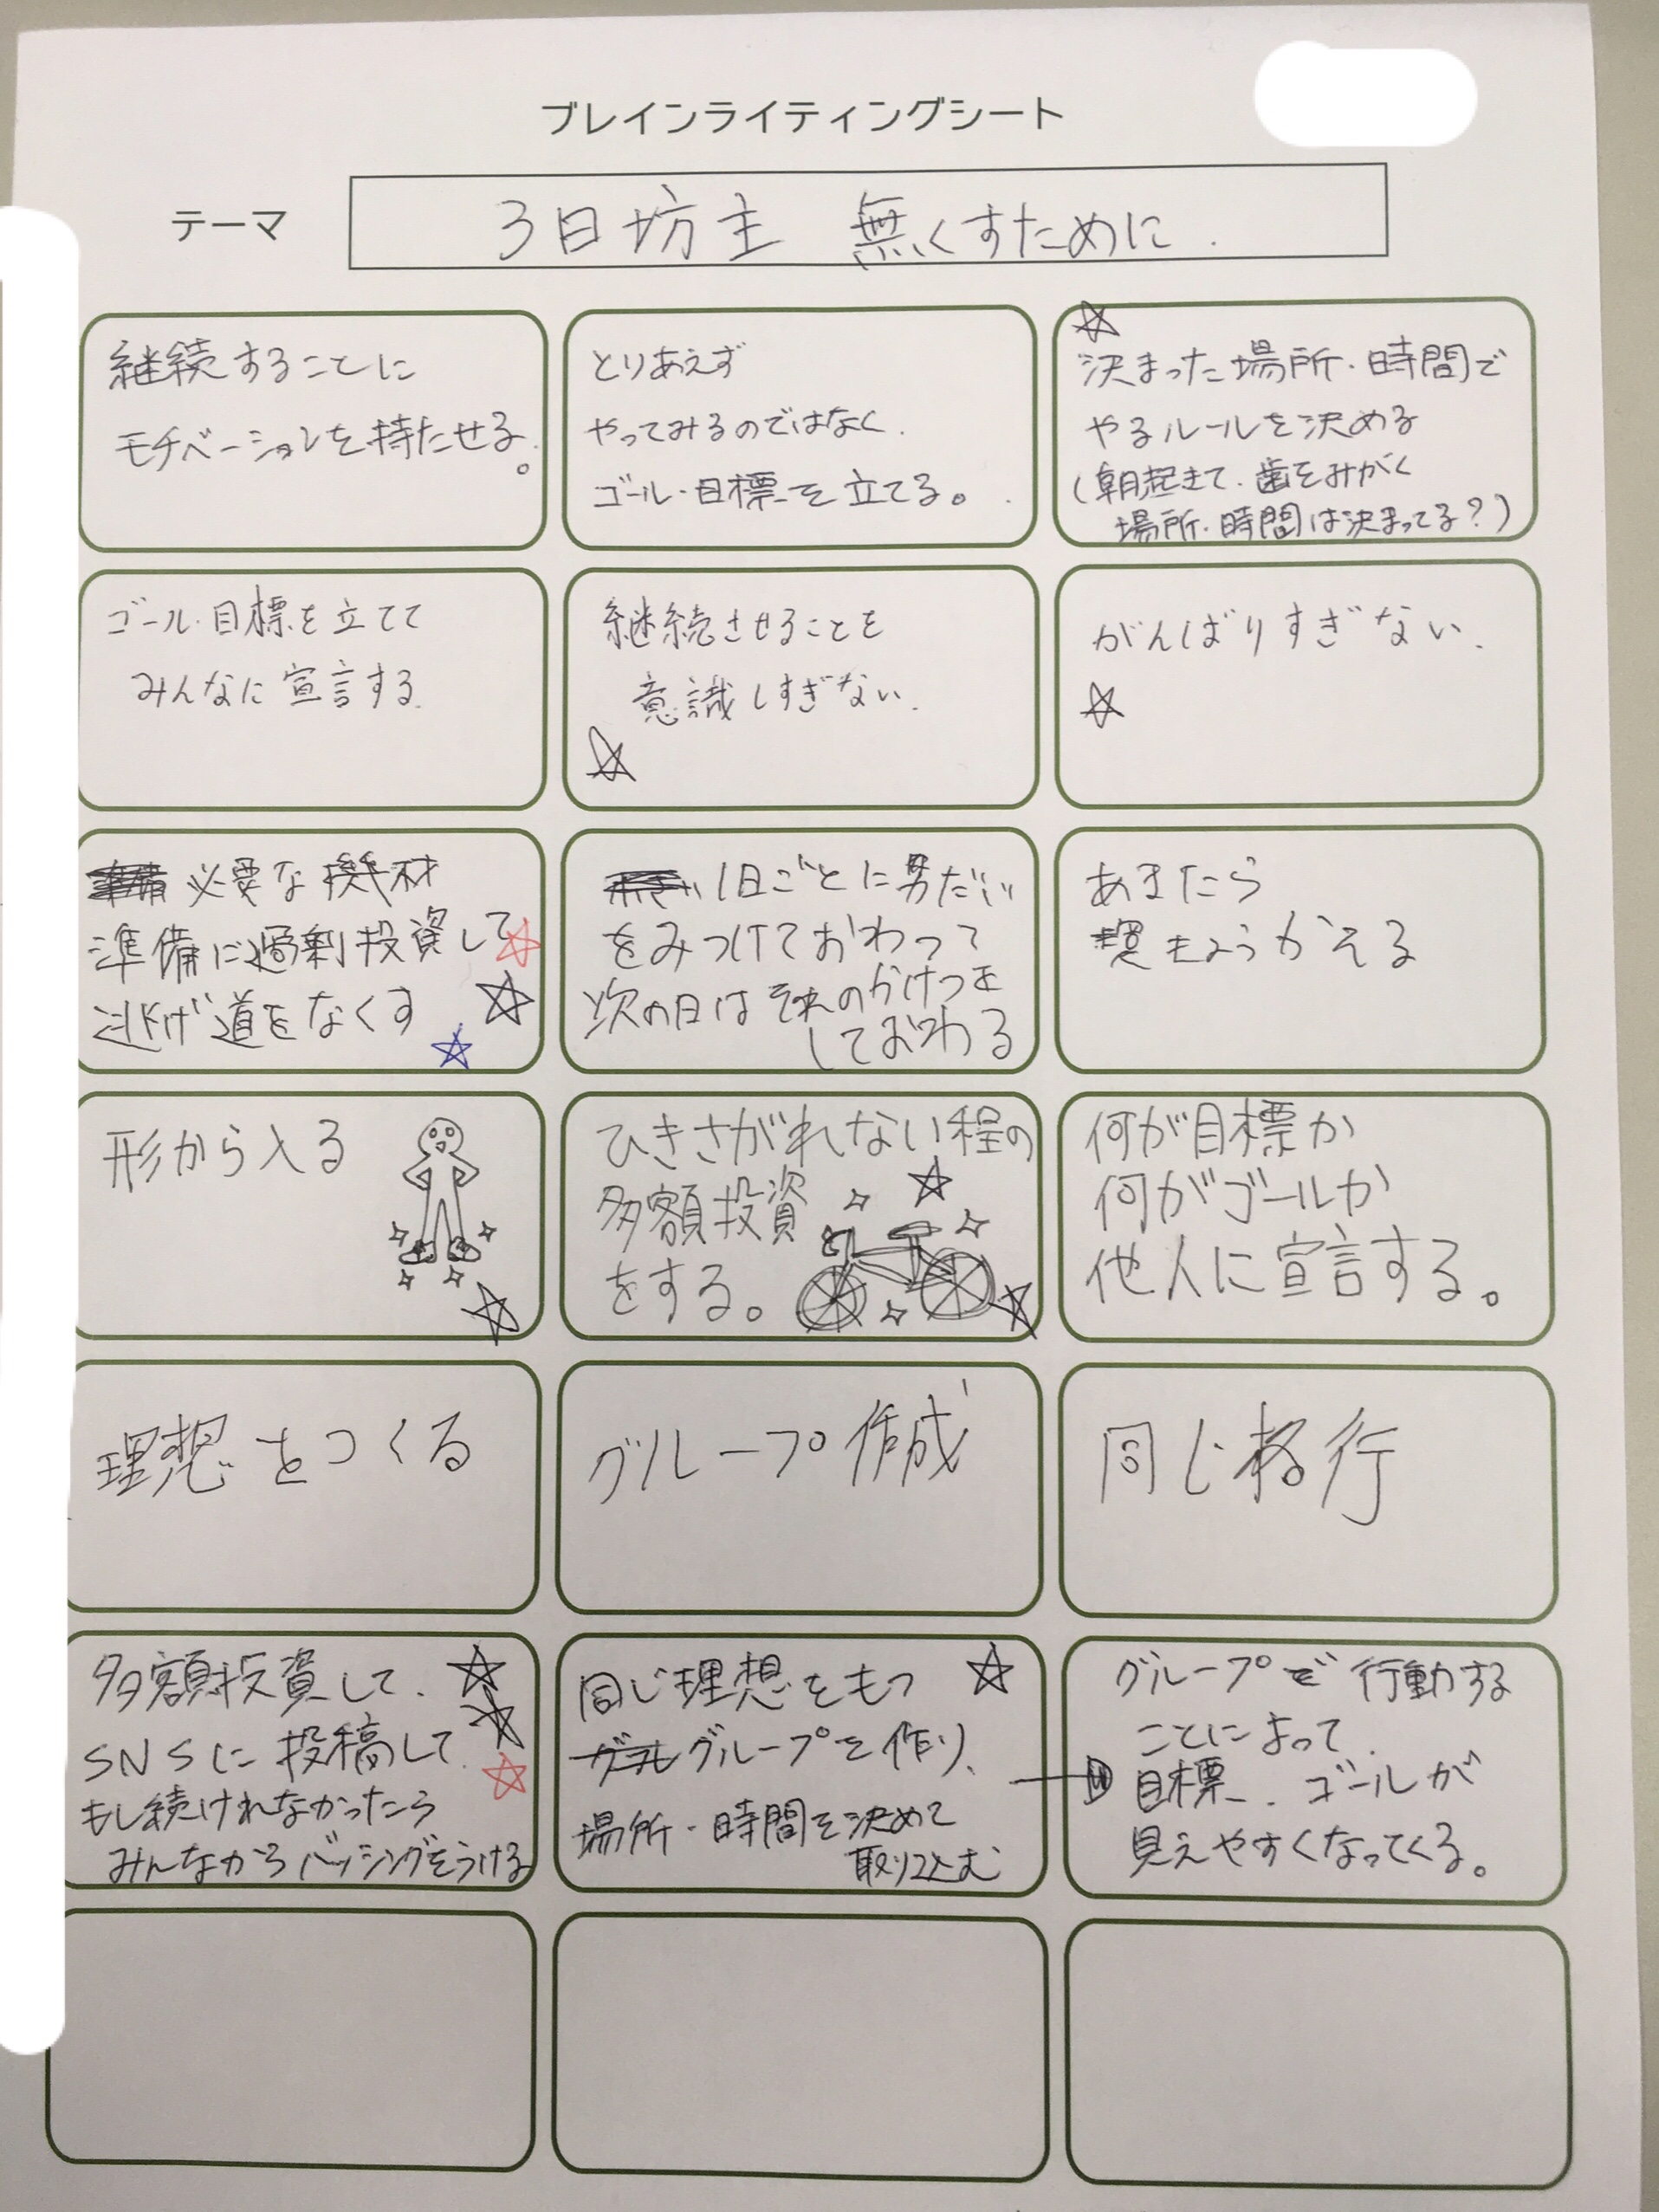 ブレインライティングシート
テーマ
3日坊主 無くすために.
継続することに
モチベーションを持たせる。
とりあえず
やってみるのではなく.
ゴール・目標を立てる。
決まった場所・時間で
やるルールを決める
(朝起きて.歯をみがく
場所・時間は決まってる?)
ゴール・目標を立てて
みんなに宣言する.
継続させることを
意識しすぎない.
がんばりすぎない.
必要な機材
準備に過剰投資して
逃げ道をなくす
1日ごとに
をみつけておわって
次の日はそれのかけつを
しておわる
あきたら
もようかえる
形から入る
ひきさがれない程の
多額投資
をする。
何が目標か
何がゴールか
他人に宣言する。
理想をつくる
グループ作成
同じ 行
多額投資して、
SNSに投稿して
もし続けれなかったら
みんなからバッシングをうける
同じ理想をもつ
グループを作り、
場所・時間を決めて
取り込む
グループで行動する
ことによって
目標、ゴールが
見えやすくなってくる。